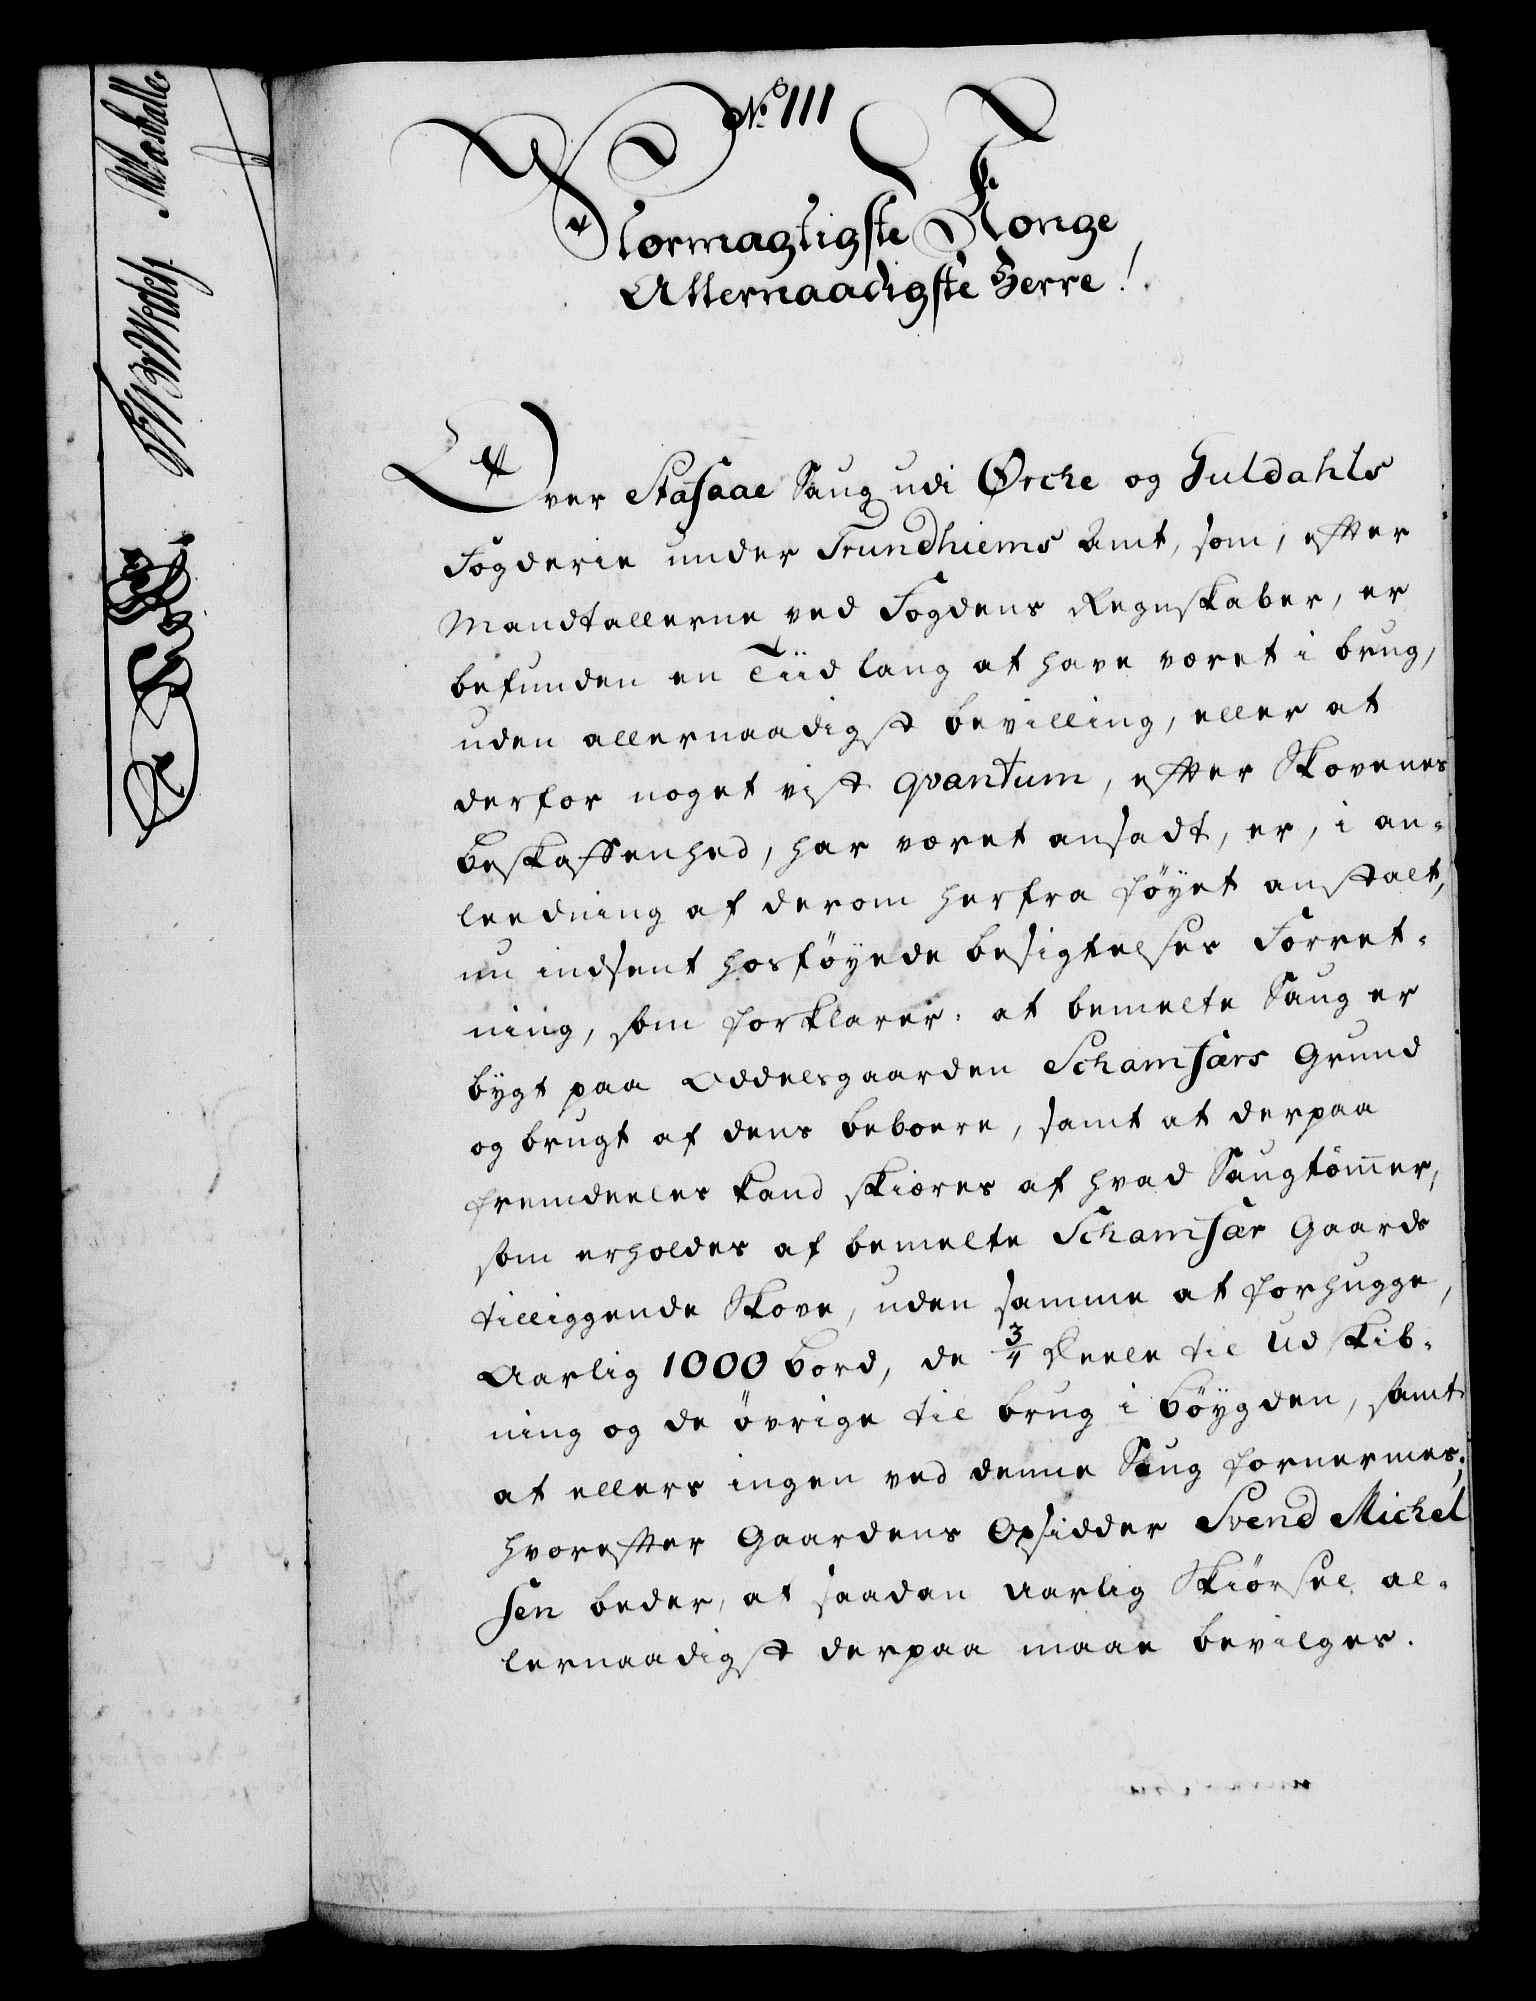 No. 111
Stormagtigste Konge
Allernaadigste Herre!
Over Stasaae Saug udi Ørche og Guldahls
Fogderie under Trundhiems Amt, som, efter
Mandtallerne ved Fogdens Regnskaber, er
befunden en Tiid lang at have været i brug,
uden allernaadigst bevilling, eller at
derfor noget vist qvantum, efter Skovenes
beskaffenhed, har været ansadt, er, i an-
leedning af derom herfra föyet anstalt,
nu indsent hosföyede besigtelses Forret-
ning, som forklarer: at bemelte Saug er
bÿgt paa Oddelsgaarden Schamsærs Grund
og brugt af dens beboere, samt at derpaa
fremdeeles kand skiæres af hvad Saugtömer,
som erholdes af bemelte Schamsær Gaards
tilliggende Skove, uden samme at forhugge,
Aarlig 1000 bord, de 3/4 Deele til Udskib-
ning og de övrige til brug i böygden, samt
at ellers ingen ved denne Saug fornermes;
hvorefter Gaardens Opsidder Svend Michel
sen beder, at saadan aarlig Skiørsel al-
lernaadigst derpaa maae bevilges.